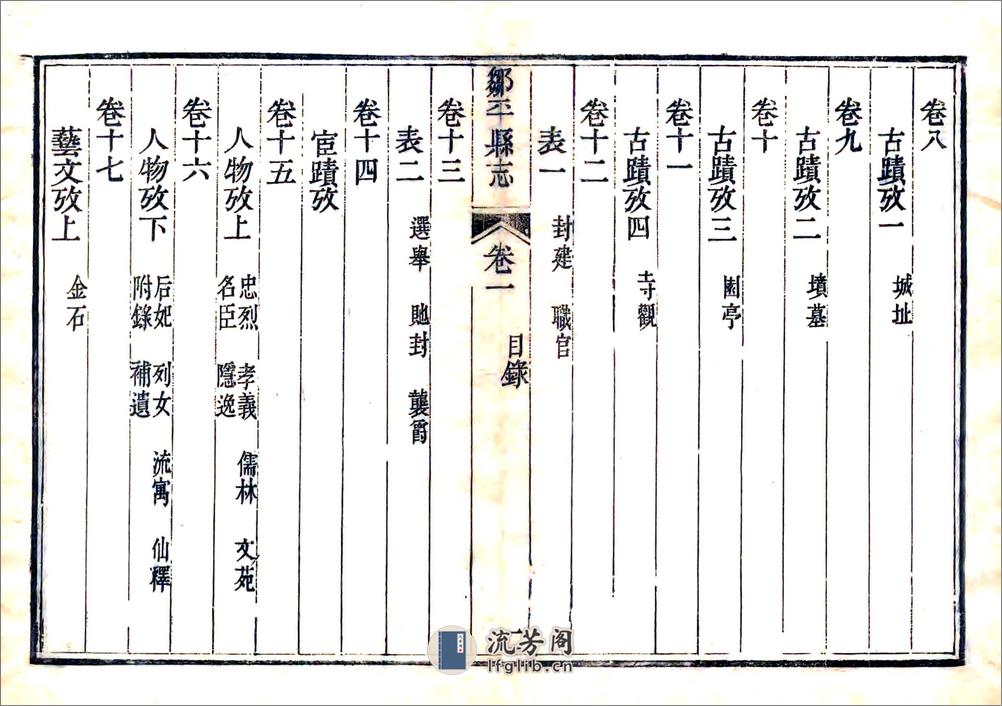 卷八
古蹟攷一 城址
卷九
古蹟攷二 墳墓
卷十
古蹟攷三 園亭
卷十一
古蹟攷四 寺觀
卷十二
表一 封建 職官
鄒平縣志 卷一 目錄
卷十三
表二 選舉 貤封 襲爵
卷十四
宦蹟攷
卷十五
人物攷上 忠烈 孝義 儒林 文苑
名臣 隱逸
卷十六
人物攷下 后妃 列女 流寓 仙釋
附錄 補遺
卷十七
藝文攷上 金石
流芳阁
lfglib.cn